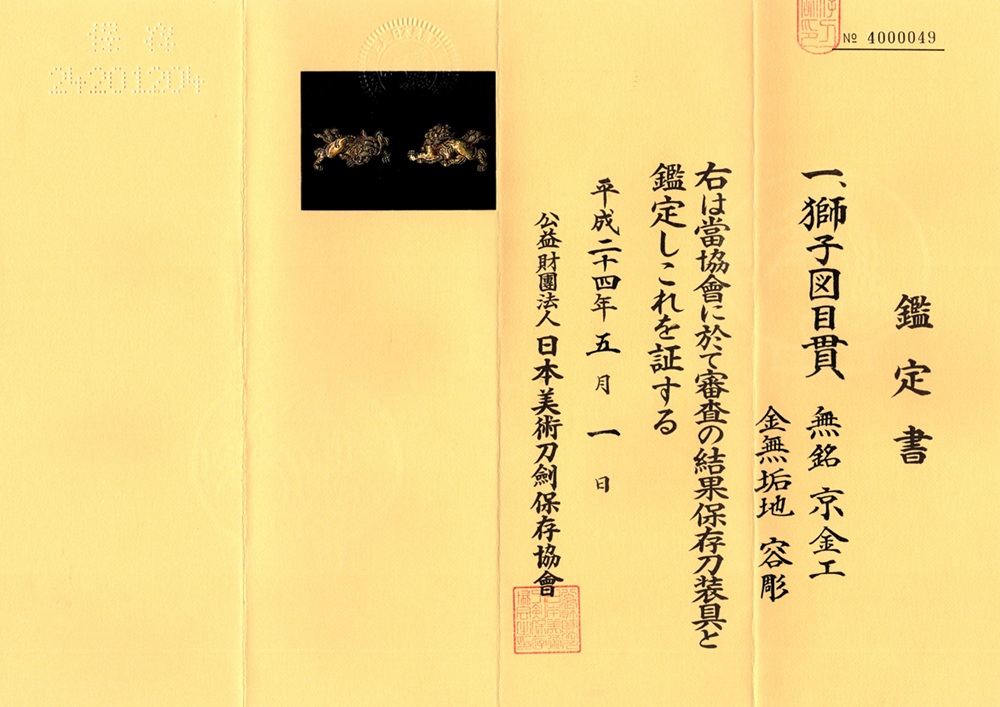 № 4000049
鑑定書
一、獅子図目貫 無銘 京金工
金無垢地 容彫
右は當協會に於て審査の結果保存刀装具と
鑑定しこれを証する
平成二十四年五月一日
公益財團法人日本美術刀劍保存協會
保存
24201204